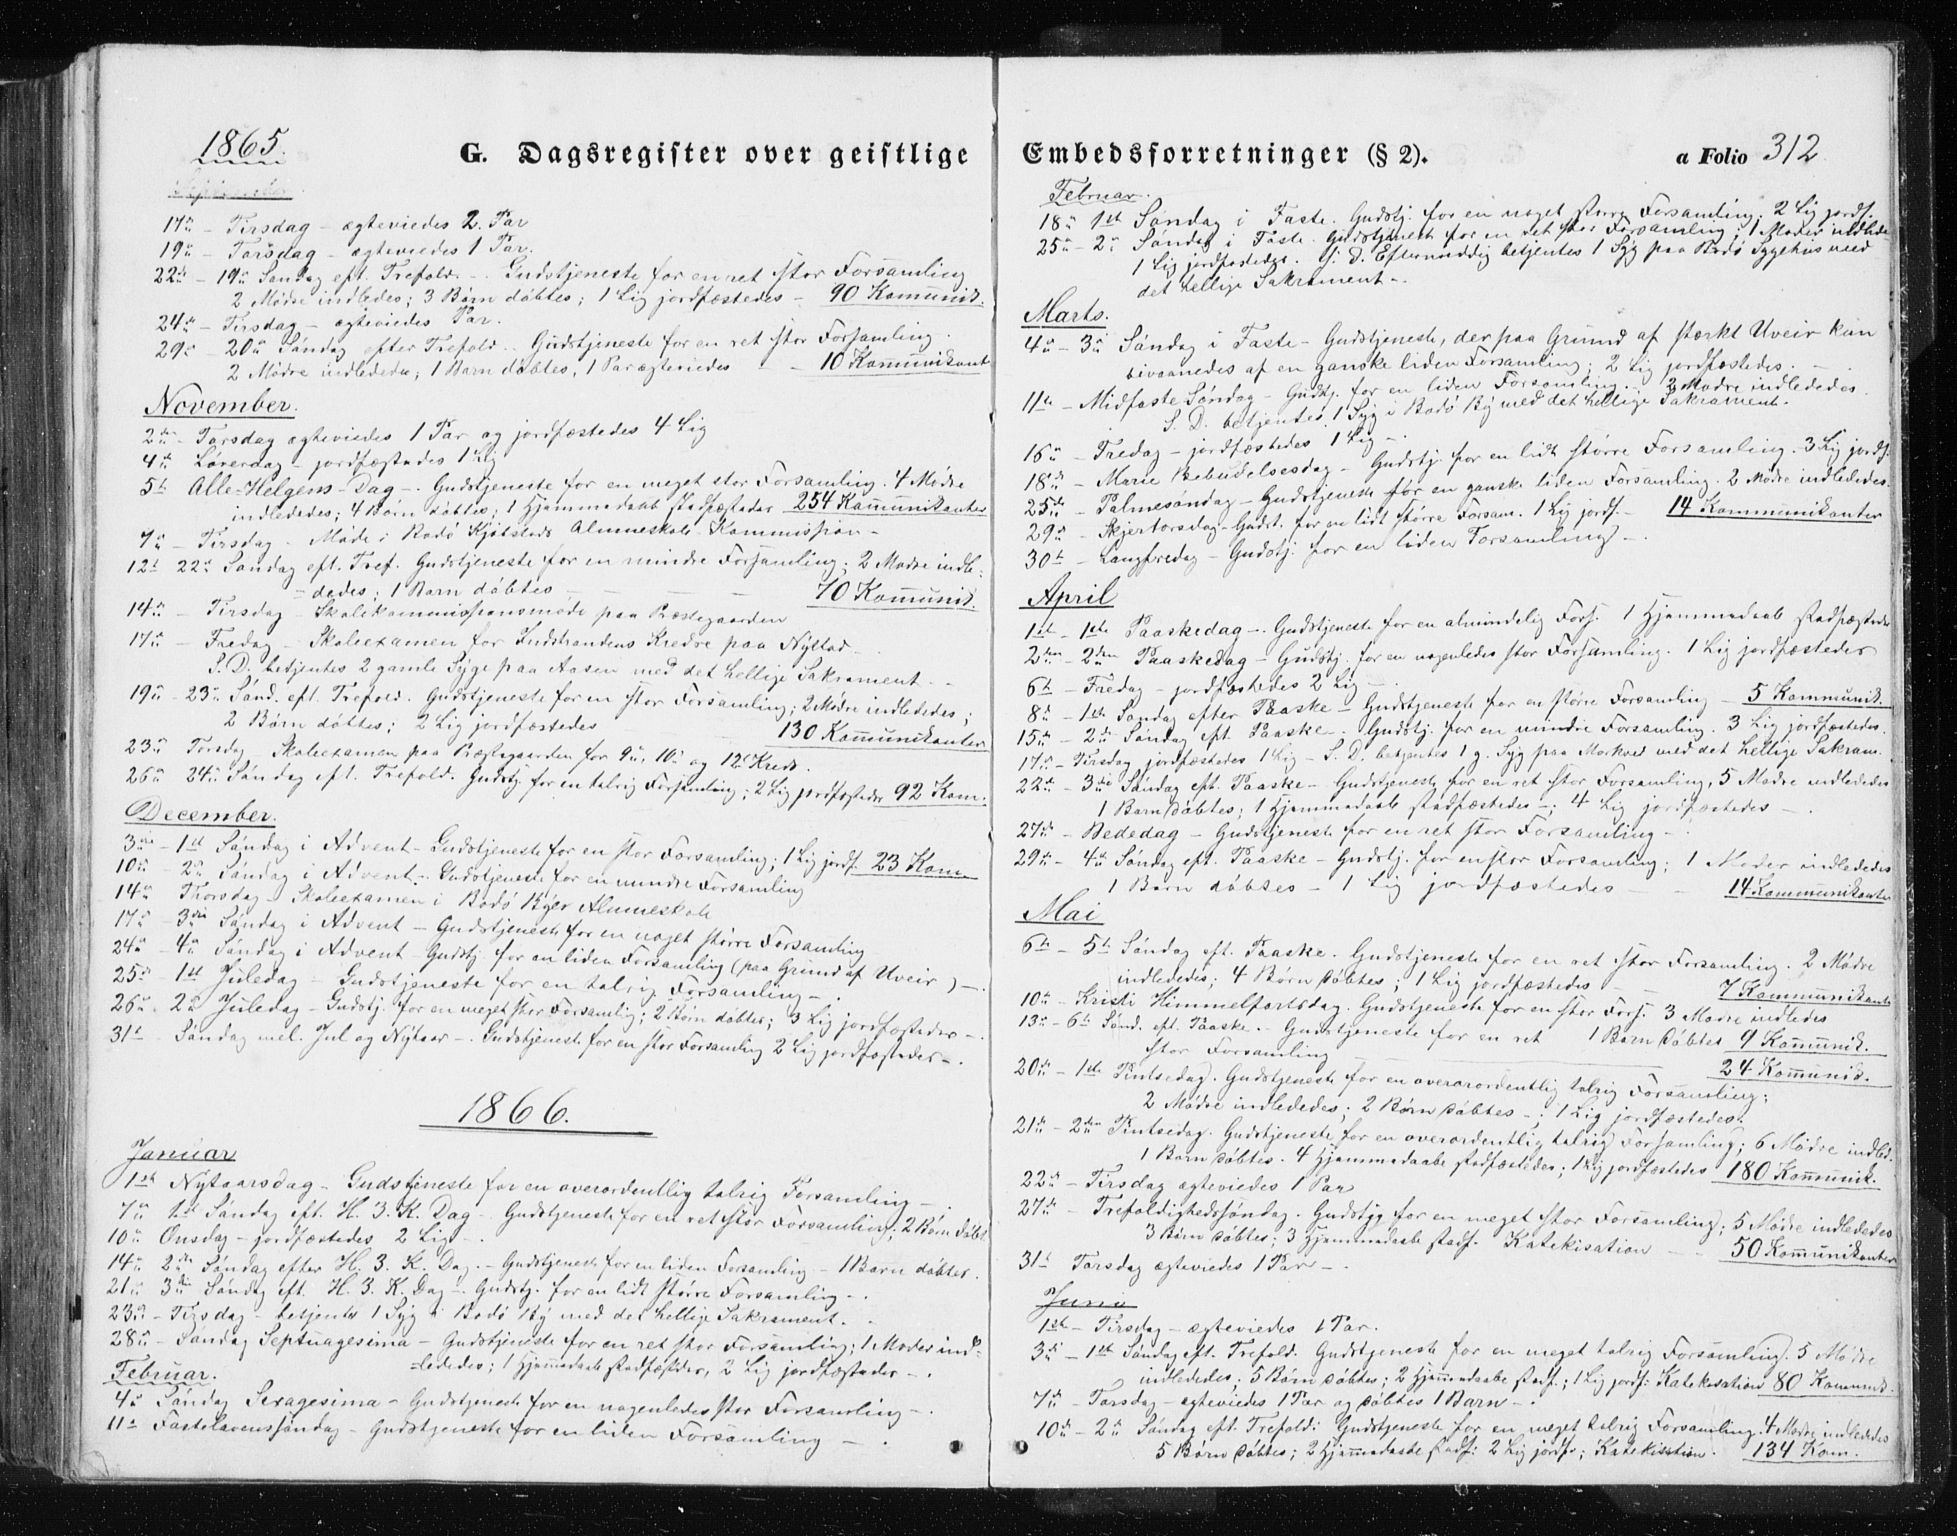 1865.
G. Dagsregister over geistlige
17de - Tirsdag - ægteviedes 2. Par
19de - Torsdag - ægteviedes 1 Par.
22de - 19de Søndag eft. Trefold. - Gudstjeneste for en ret stor Forsamling
2 Mødre indledes; 3 Børn døbtes; 1 Lig jordfæstedes - 90 Komunik.
24de - Tirsdag - ægteviedes Par.
29de - 20de Søndag efter Trefold. - Gudstjeneste for en ret stor Forsamling.
2 Mødre indlededes; 1 Barn døbtes; 1 Par ægteviedes - - 10 Komunikant
November.
2den - Torsdag ægteviedes 1 Par og jordfæstedes 4 Lig
4de Løverdag - jordfæstedes 1 Lig
5te Alle-Helgens-Dag -. Gudstjeneste for en meget stor Forsamling. 4 Mødre
indlededes; 4 Børn døbtes; 1 Hjemmedøbt stadfæstedes 254 Komunikanter
7de - Tirsdag - Møde i Bodø Kjøbsteds Almueskole-Kommission -
12te 22de Søndag eft. Tref. Gudstjeneste for en mindre Forsamling; 2 Mødre indle-
dedes; 1 Barn døbtes - - - 70 Komunik.
14de - Tirsdag - Skolekommissionsmøde paa Præstegaarden
17de - Fredag - Skoleexamen for Indstrandens Kredse paa Nystad -.
S. D. betjentes 2 gamle Syge paa Aasen med det hellige Sakrament. -
19de - 23de Sønd. eft. Trefold. Gudstjeneste for en stor Forsamling; 2 Mødre indlededes;
2 Børn døbtes; 2 Lig jordfæstedes - 130 Komunikanter
23de Torsdag - Skoleexamen paa Præstegaarden for 9de, 10de og 12te Kreds.
26de 24de Søndag eft. Trefold. Gudstj. for en talrig Forsamling; 2 Lig jordfæstedes 92 Kom.
December.
3die - 1ste Søndag i Advent - Gudstjeneste for en stor Forsamling; 1 Lig jordf. 23 Kom.
10de - 2den Søndag i Advent - Gudstjeneste for en mindre Forsamling
14de Thorsdag - Skoleexamen i Bodø Byes Almueskole
17de - 3die Søndag i Advent - Gudstjeneste for en noget større Forsamling
24de - 4de Søndag i Advent - Gudstj. for en liden Forsamling (paa Grund af Uveir) -.
25de - 1ste Juledag - Gudstjeneste for en talrig Forsamling -.
26de - 2den Juledag - Gudstj. for en meget stor Forsamlig; 2 Børn døbtes; 3 Lig jordfæstedes -.
31te Søndag mel. Jul og Nytaar -. Gudstjeneste for en stor Forsamling 2 Lig jordfæstedes -.
1866.
Januar
1ste Nytaarsdag - Gudstjeneste for en overordentlig talrig Forsamling -.
7de 1ste Søndag eft. H. 3. K. Dag - Gudstjeneste for en ret stor Forsamling; 2 Børn døbt.
10de Onsdag - jordfæstedes 2 Lig -.
14de 2den Søndag efter H. 3. K. Dag. - Gudstjeneste for en liden Forsamling - 1 Barn døbtes.
21de 3die Søndag eft. H. 3. K. Dag - Gudstj. for en lidt større Forsamling -.
23de - Tirsdag - betjentes 1 Syg i Bodø By med det hellige Sakrament.
28de - Søndag Septuagesima - Gudstjeneste for en ret stor Forsamling; 1 Moder ind-
ledes; 1 Hjemedøbt stadfæstedes, 2 Lig jordfæstedes -.
Februar.
4de Søndag Sexagesima - Gudstjeneste for en nogenledes stor Forsamling -.
11te Fastelavenssøndag - Gudstjeneste for en liden Forsamling -.
Embedsforretninger (§ 2).
a Folio 312
Februar.
18de 1ste Søndag i Faste. Gudstj. for en noget større Forsamling; 2 Lig jordf.
25de - 2den Søndag i Faste. Gudstjeneste for en ret stor Forsamling; 1 Moder indlede
1 Lig jordfæstedes. S. D. Eftermiddag betjentes 1 Syg paa Bodø Sygehus med
det hellige Sakrament -.
Marts.
4de - 3die Søndag i Faste - Gudstjeneste, der paa Grund af stærkt Uveir kun
bivaanedes af en ganske liden Forsamling; 2 Lig jordfæstedes. -
11te - Midfaste Søndag - Gudstj. for en liden Forsamling. - 2 Mødre indlededes.
S. D. betjentes 1 Syg i Bodø By med det hellige Sakrament.
16de - Fredag - jordfæstedes 1 Lig -.
18de - Marie Bebudelsesdag - Gudstj. for en lidt større Forsamling. 3 Lig jordf.
25de - Palmesøndag - Gudstjeneste for en ganske liden Forsamling. 2 Mødre indlededes.
29de - Skjertorsdag - Gudst. for en lidt større Forsam. 1 Lig jordf. - 14 Kommunikanter
30te - Langfredag - Gudstj. for en liden Forsamling -.
April
1ste - 1ste Paaskedag -. Gudstjeneste for en almindelig Fors. 1 Hjemmedøbt stadfæstedes
2den - 2den Paaskedag - Gudstj. for en nogenledes stor Forsamling. 1 Lig jordfæstedes
6te - Fredag - jordfæstedes 2 Lig -
8de - 1ste Søndag efter Paaske - Gudstjeneste for en større Forsamling - 5 Kommunik.
15de - 2den Søndag eft. Paaske. Gudstj. for en mindre Forsamling. 3 Lig jordfæstedes.
17de - Tirsdag jordfæstedes 1 Lig - S. D. betjentes 1 g. Syg paa Morkved med det hellige Sakram.
22de - 3die Søndag eft. Paaske - Gudstjeneste for en ret stor Forsamling; 5 Mødre indlededes
1 Barn døbtes; 1 Hjemmedøbt stadfæstedes -; 4 Lig jordfæstedes -
27de - Bededag - Gudstjeneste for en ret stor Forsamling -.
29de - 4de Søndag eft. Paaske - Gudstj. for en stor Forsamling; 1 Moder indlededes
1 Barn døbtes - 1 Lig jordfæstedes - - 14 Kommunikanter
Mai
6te - 5te Søndag eft. Paaske. Gudstjeneste for en ret stor Forsamling. 2 Mødre
indlededes; 4 Børn døbtes; 1 Lig jordfæstedes - - 7 Kommunikante
10de - Kristi Himmelfartsdag. Gudstjeneste for en stor Fors. 3 Mødre indledes
13de - 6te Sønd. eft. Paaske. - Gudstjeneste for en ret 1 Barn døbtes 9 Komunik.
stor Forsamling - 24 Komunik.
20de - 1ste Pintsedag. Gudstjeneste for en overordentlig talrig Forsamling;
2 Mødre indlededes; 2 Børn døbtes -; 1 Lig jordfæstedes.
21de - 2den Pintsedag. Gudstjeneste for en overordentlig talrig Forsamling; 6 Mødre indled.
1 Barn døbtes. 4 Hjemmedøbte stadfæstedes; 1 Lig jordfæstedes 180 Komunik.
22de - Tirsdag ægteviedes 1 Par
27de - Trefoldighedssøndag. Gudstj. for en meget stor Forsamling; 5 Mødre indlededes
3 Børn døbtes; 3 Hjemmedøbte stadf. Katekisation - - 50 Komunikanter
31te Torsdag ægteviedes 1 Par -.
Juni
1ste - Tirsdag - ægteviedes 1 Par.
3die - 1ste Søndag eft. Trefold. Gudstjeneste for en meget talrig Forsamling. 5 Mødre
indlededes; 5 Børn døbtes; 2 Hjemmedøbte stadf.; 1 Lig jordf: Katekisation 80 Komunik.
7de - Torsdag - ægteviedes 1 Par og døbtes 1 Barn -.
10de - 2den Søndag eft. Trefold: Gudstjeneste for en meget talrig Forsamling. 4 Mødre indledes
5 Børn døbtes; 2 Hjemmedøbte stadf: 2 Lig jordf.; Katekisation. 134 Kom.